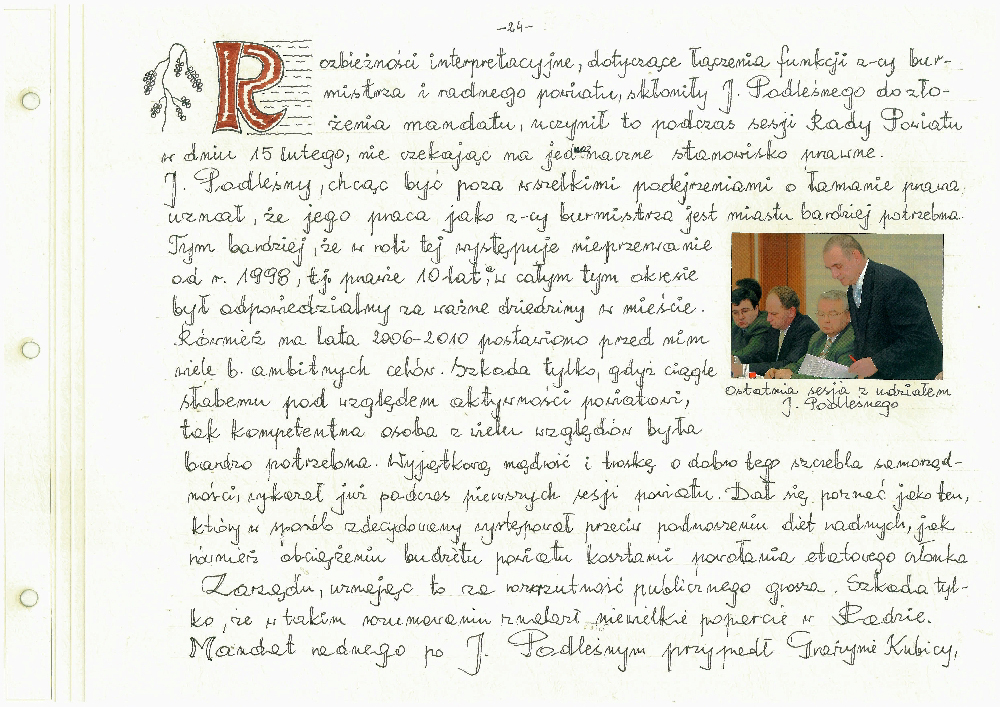 -24-
Rozbieżności interpretacyjne, dotyczące łączenia funkcji z-cy bur-
mistrza i radnego powiatu, skłoniły J. Podleśnego do zło-
żenia mandatu, uczynił to podczas sesji Rady Powiatu
w dniu 15 lutego, nie czekając na jednoznaczne stanowisko prawne.
J. Podleśny, chcąc być poza wszelkimi podejrzeniami o łamanie prawa
uznał, że jego praca jako z-cy burmistrza jest miastu bardziej potrzebna.
Tym bardziej, że w roli tej występuje nieprzerwanie
od r. 1998, tj. prawie 10 lat, i w całym tym okresie
był odpowiedzialny za ważne dziedziny w mieście.
Również na lata 2006-2010 postawiono przed nim
wiele b. ambitnych celów. Szkoda tylko, gdyż ciągle
słabemu pod względem aktywności powiatowi,
tak kompetentna osoba z wielu względów była
bardzo potrzebna. Wyjątkową mądrość i troskę o dobro tego szczebla samorząd-
ności, wykazał już podczas pierwszych sesji powiatu. Dał się poznać jako ten,
który w sposób zdecydowany występował przeciw podnoszeniu diet radnych, jak
również obciążeniu budżetu powiatu kosztami powołania etatowego członka
Zarządu, uznając to za rozrzutność publicznego grosza. Szkoda tyl-
ko, że w takim rozumowaniu znalazł niewielkie poparcie w Radzie.
Mandat radnego po J. Podleśnym przypadł Grażynie Kubicy,
Ostatnia sesja z udziałem
J. Podleśnego